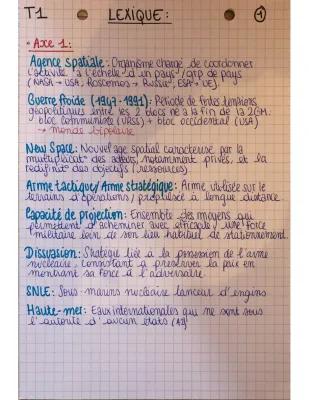 T1 LEXIQUE: 1
• Axe 1:
Agence spatiale: Organisme chargé de coordonner
l'activité à l'échelle d'un pays/grp de pays
(NASA → USA, Roscomos → Russie, ESA → UE).
Guerre froide (1947-1991): Période de fortes tensions
géopolitiques entre les 2 blocs né à la fin de la 2GM.
bloc communiste (URSS) + bloc occidental (USA)
→ monde bipolaire
New Space: Nouvel age spatial caractérisé par la
multiplicat° des acteurs, notamment privés, et la
redéfinit° des objectifs (ressources)
Arme tactique/Arme stratégique: Arme utilisée sur le
terrains d'opérations/propulsée à longue distance.
Capacité de projection: Ensemble des moyens qui
permettent d'acheminer avec efficacité une force
militaire loin de son lieu habituel de stationnement.
Dissuasion: Stratégie liée à la possession de l'arme
nucléaire, consistant à préserver la paix en
montrant sa force à l'adversaire.
SNLE: Sous-marins nucléaire lanceur d'engins
Haute-mer: Eaux internationales qui ne sont sous
l'autorité d'aucun états